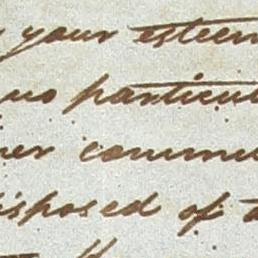 your esteem
no particul
er commu
isposed of